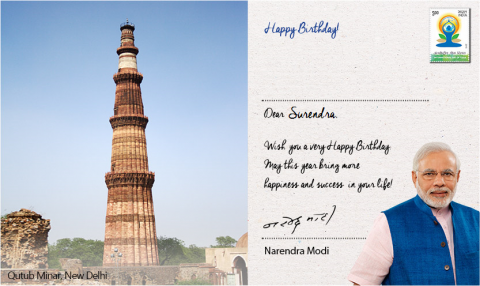 Happy Birthday!
INDIA
Dear Surendra.
Wish you a very Happy Birthday
May this year bring more
happiness and success in your life!
Narendra Modi
Qutub Minar, New Delhi